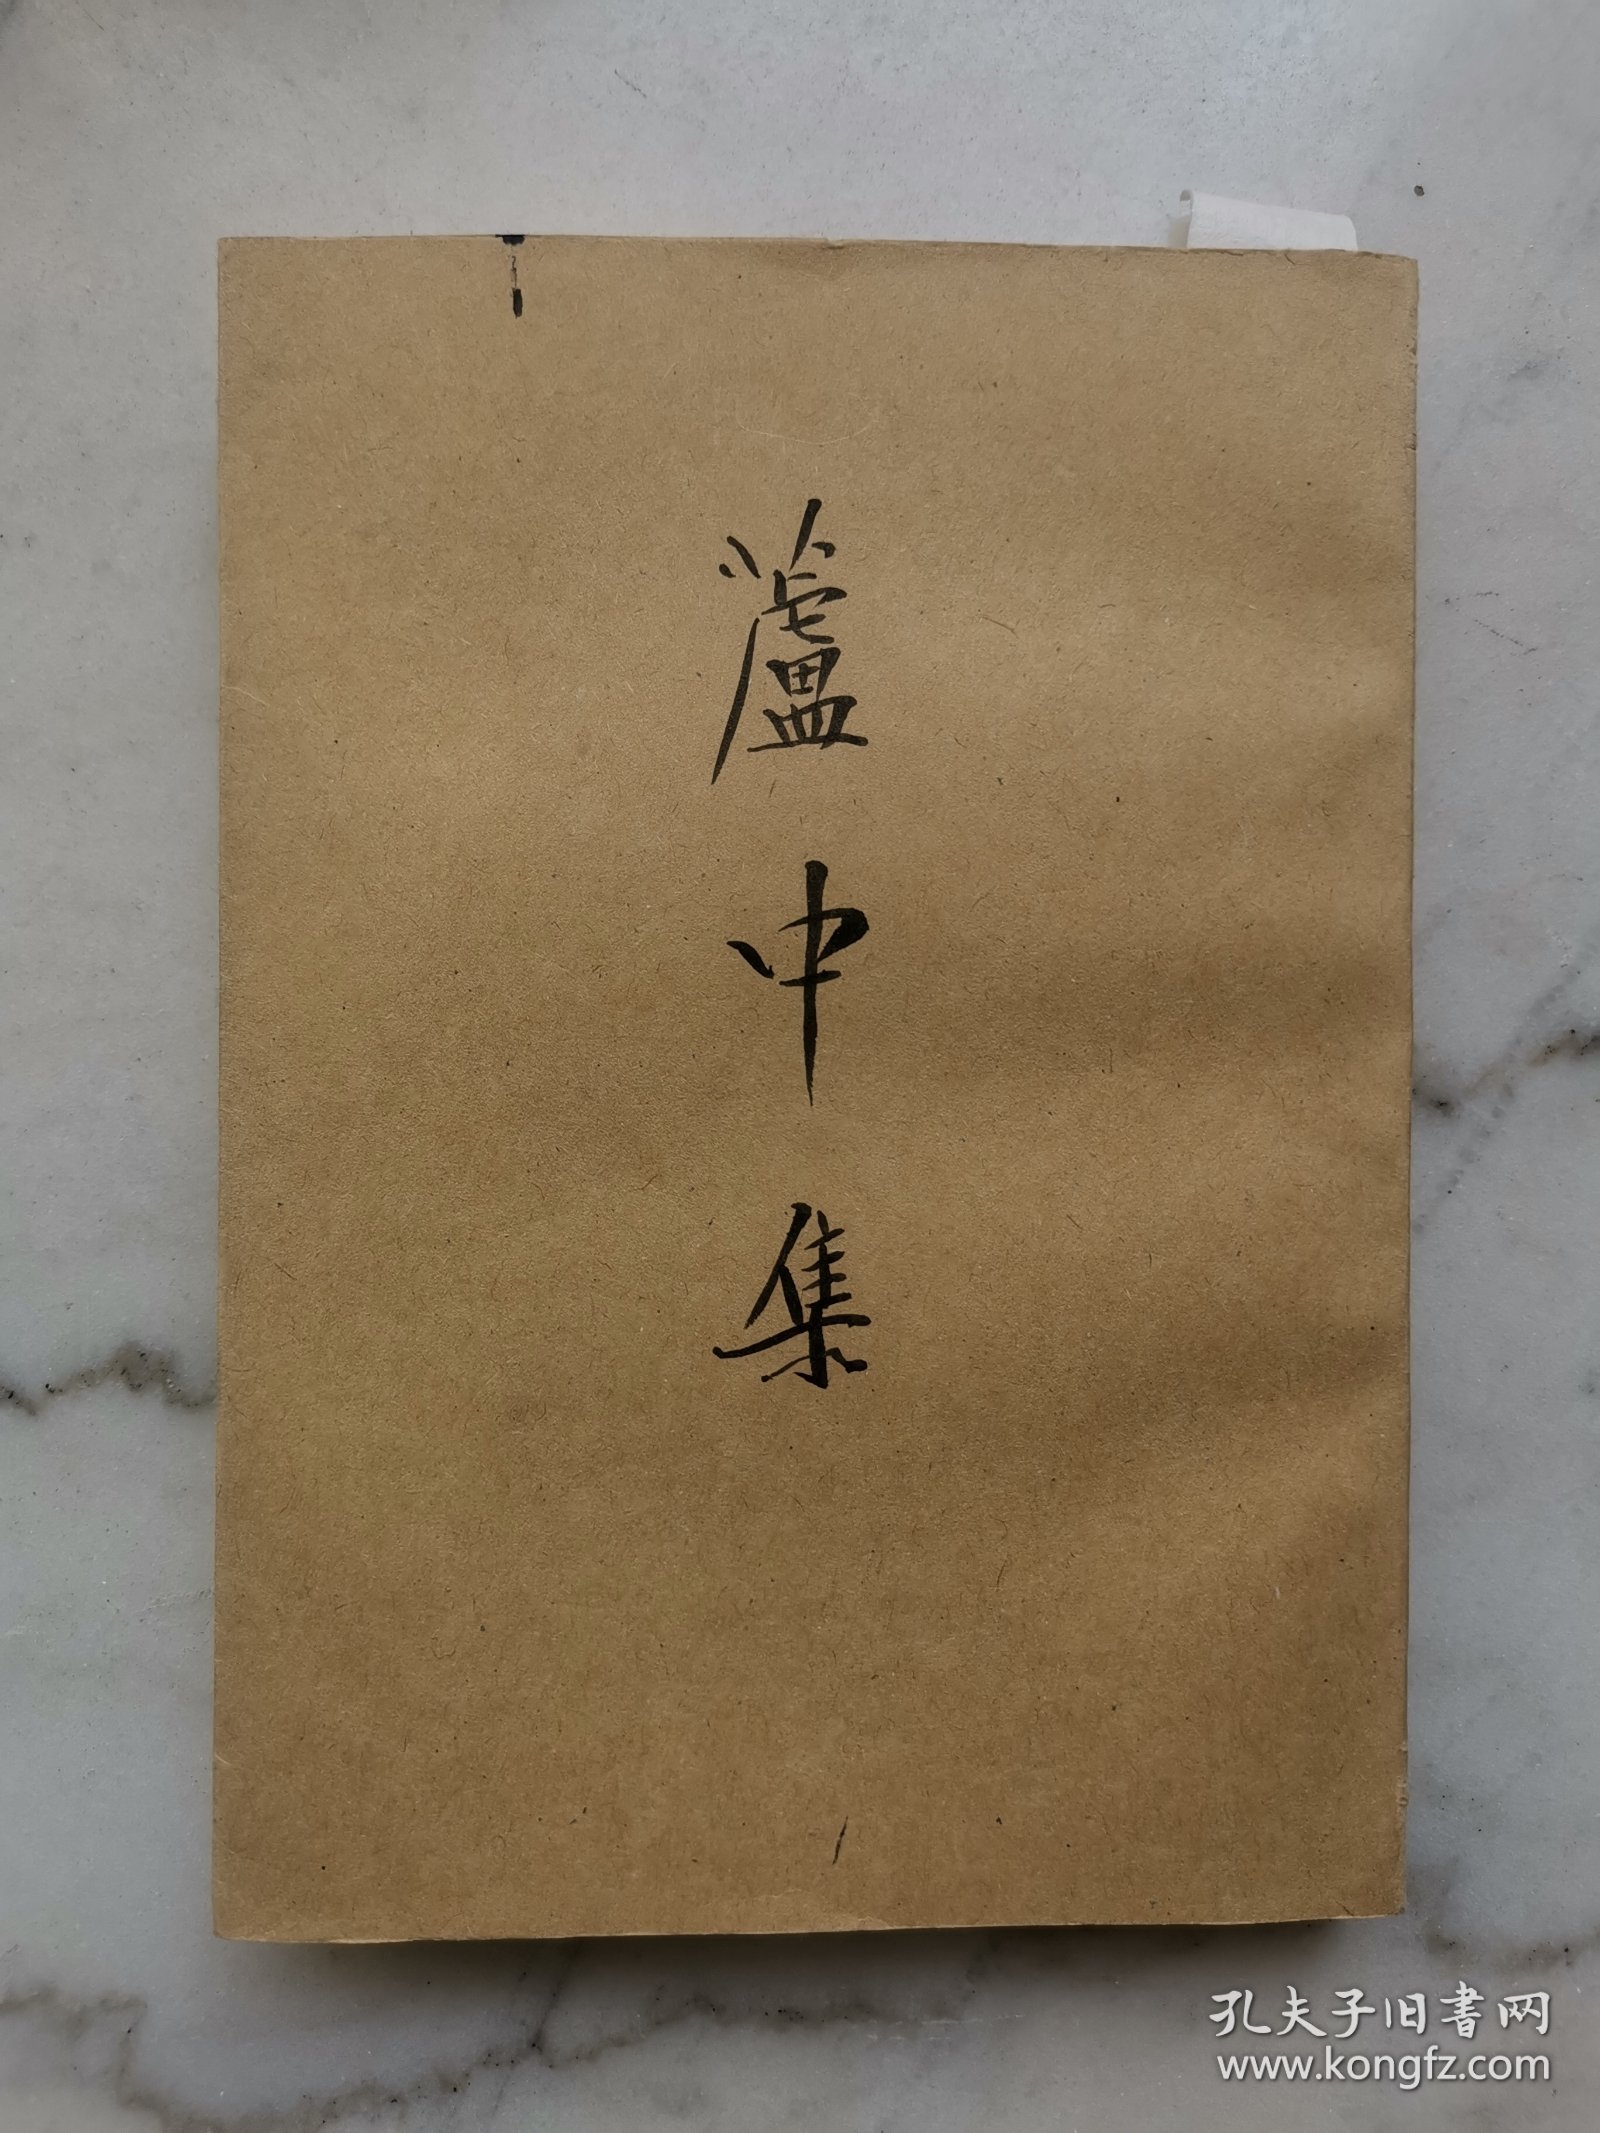 蘆中集
孔夫子旧書网
www.kongfz.com